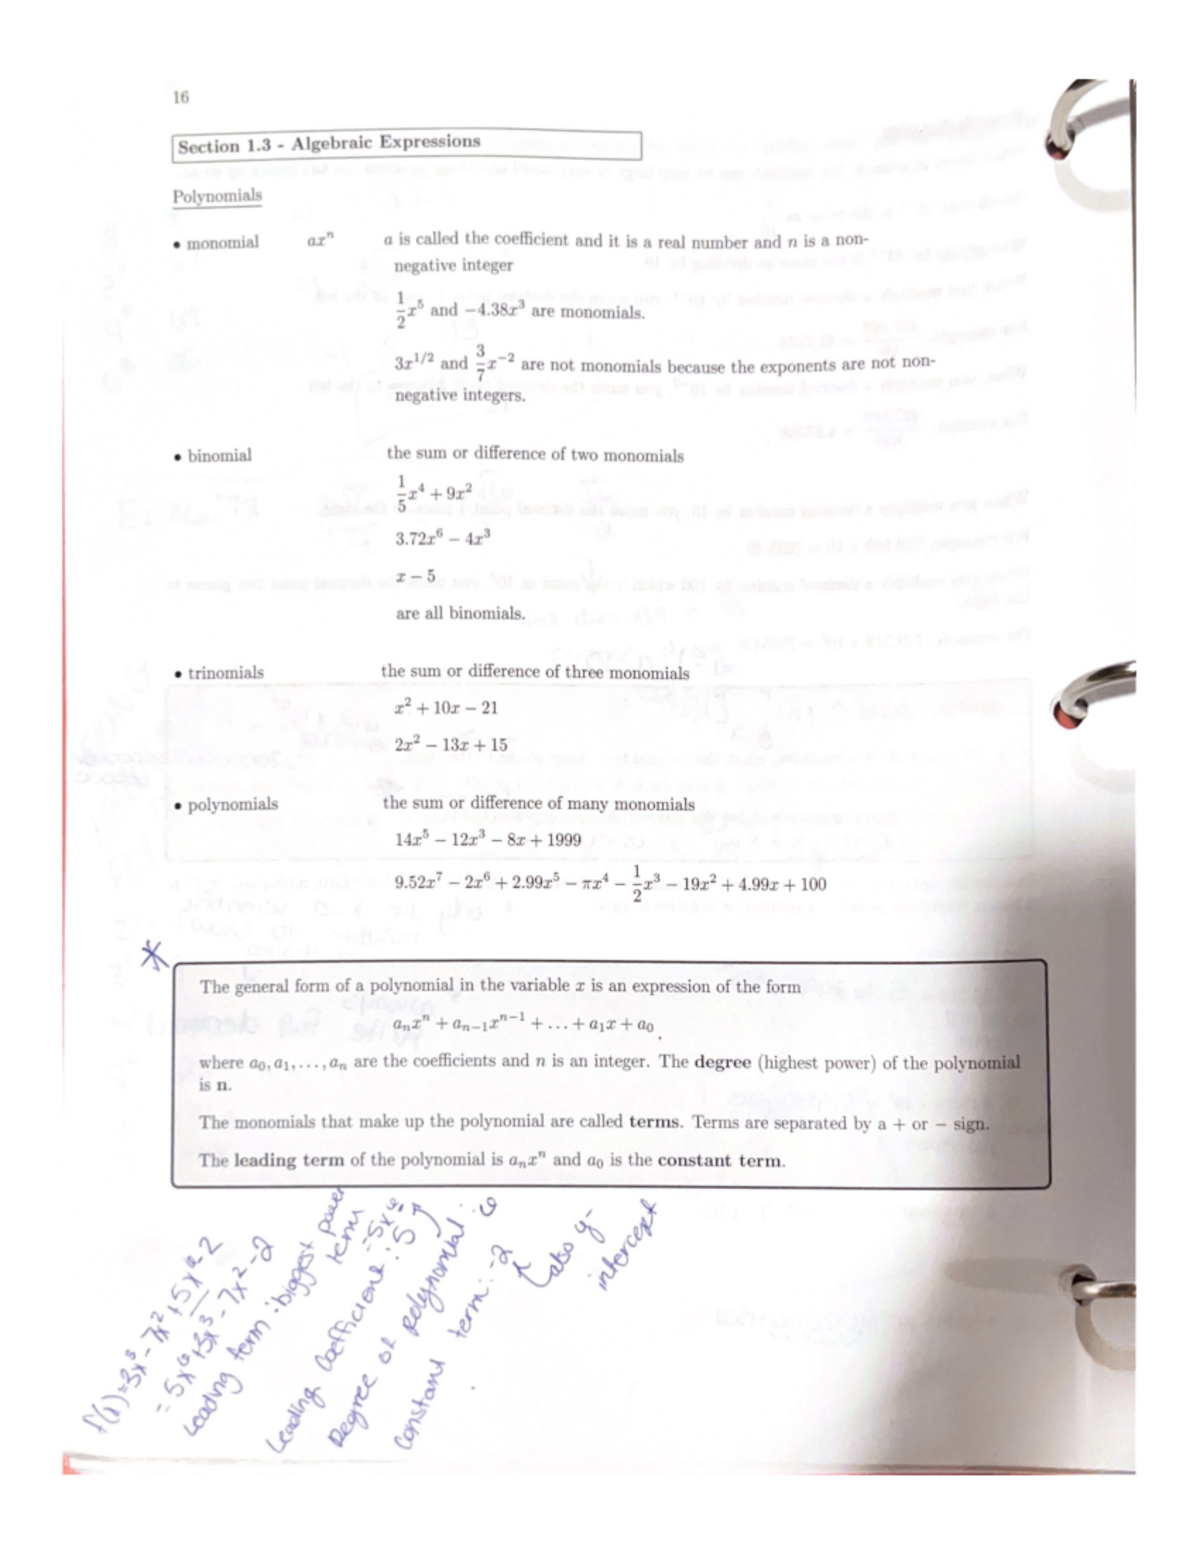 16
Section 1.3 - Algebraic Expressions
Polynomials
• monomial axⁿ a is called the coefficient and it is a real number and n is a non-
negative integer
1/2 x⁵ and −4.38x³ are monomials.
3x^{1/2} and 3/7 x⁻² are not monomials because the exponents are not non-
negative integers.
• binomial the sum or difference of two monomials
1/5 x⁴ + 9x²
3.72x⁶ − 4x³
x − 5
are all binomials.
• trinomials the sum or difference of three monomials
x² + 10x − 21
2x² − 13x + 15
• polynomials the sum or difference of many monomials
14x⁵ − 12x³ − 8x + 1999
9.52x⁷ − 2x⁶ + 2.99x⁵ − πx⁴ − 1/2 x³ − 19x² + 4.99x + 100
The general form of a polynomial in the variable x is an expression of the form
aₙxⁿ + aₙ₋₁xⁿ⁻¹ + … + a₁x + a₀.
where a₀, a₁, …, aₙ are the coefficients and n is an integer. The degree (highest power) of the polynomial
is n.
The monomials that make up the polynomial are called terms. Terms are separated by a + or − sign.
The leading term of the polynomial is aₙxⁿ and a₀ is the constant term.
f(x)=3x³-7x²+5x⁶-2
=5x⁶+3x³-7x²-2
Leading term: biggest power
term =5x⁶
Leading Coefficient: 5
Degree of polynomial: 6
Constant term: -2
also y-
intercept